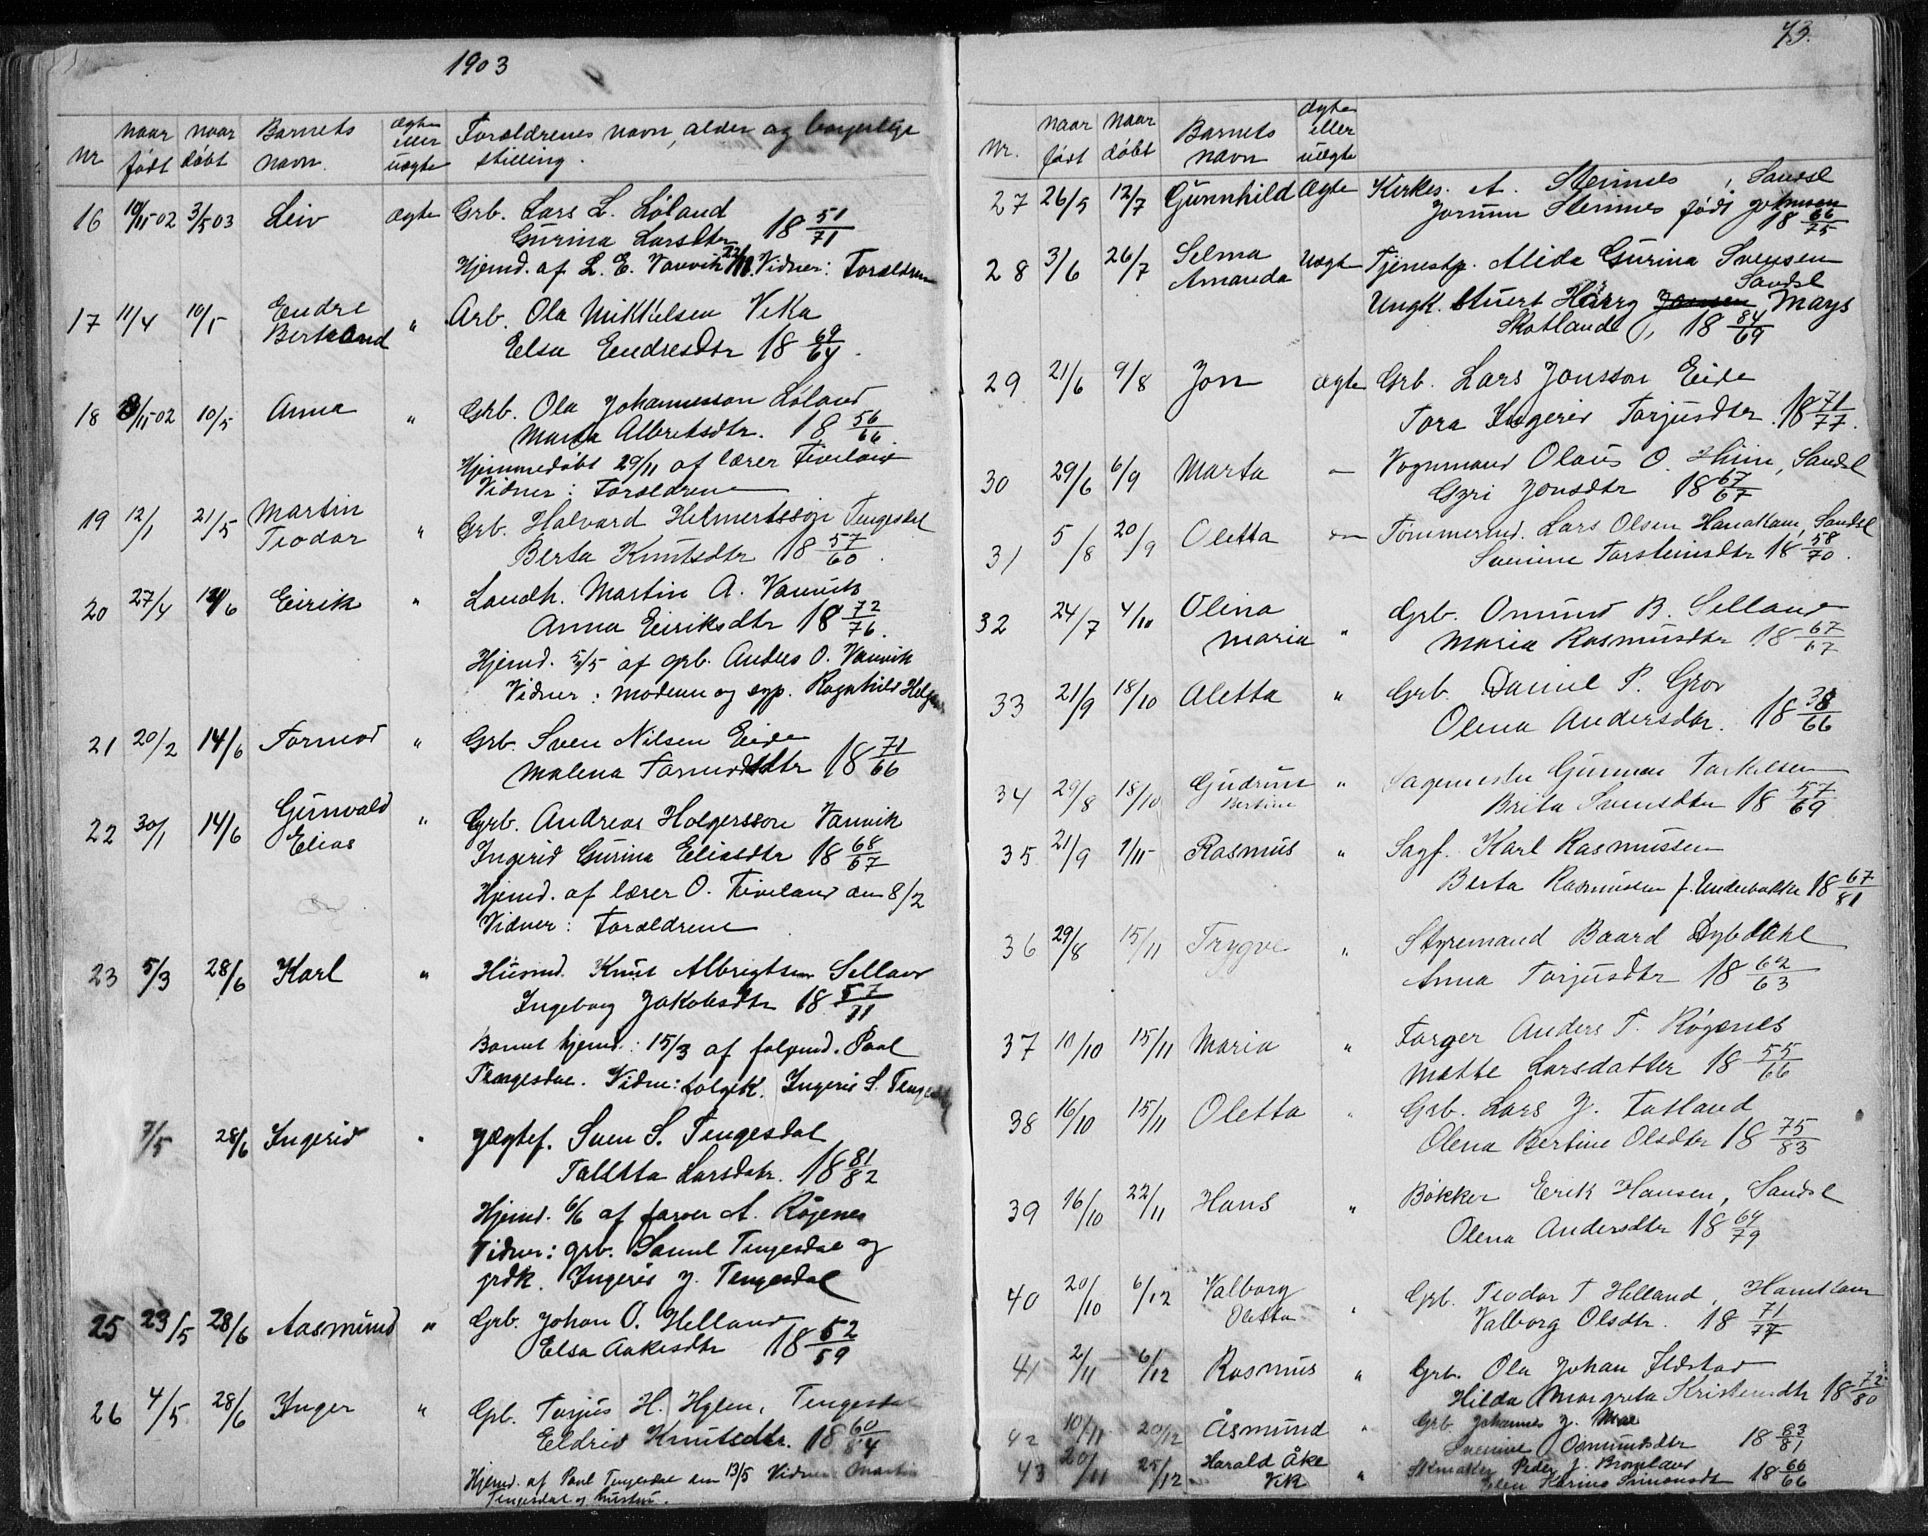 1903
Nr
naar født
naar døbt
Barnets navn.
ægte eller uægte
Forældrenes navn, alder og borgerlige stilling.
16 19/11 02 3/5 03 Leiv ægte Grb. Lars L. Løland
Gurina Larsdtr 18 51/71
Hjemd. af L. E. Vanvik Vidner: Forældrene
17 11/4 10/5 Endre Arb. Ola Mikkelsen Vika
Bertrand " Elsa Endresdtr 18 69/64.
18 /11 02 10/5 Anna " Grb. Ola Johannesson Løland
Marta Albretsdtr. 18 56/66.
Hjemmedøbt 29/11 af lærer Tveiland
Vidner: Forældrene
19 12/1 21/5 Martin Grb. Halvard Helmertsson Tengesdal
Teodor " Berta Knutsdtr 18 57/60.
20 27/4 /6 Eirik " Landh. Martin A. Vanvik
Anna Eiriksdtr 18 72/76.
Hjemd. 5/5 af grb. Anders O. Vanvik
Vidner: moderen og Ragnhild
21 20/2 14/6 Tormod " Grb. Sven Nilsen Eide
Malena Tormodsdtr 18 71/66
22 30/1 14/6 Gunvald " Grb. Andreas Holgersson Vanvik
Elias Ingerid Gurina Eliasdtr 18 68/67
Hjemd. af lærer O. Tveiland den 8/2
Vidner: Forældrene
23 5/3 28/6 Karl " Husmd. Knut Albrigtsen Selland
Ingeborg Jakobsdtr 18 57/71
Barnet hjemd.: 15/3 af Paul
Tengesdal. Vidne: Ingerid S.
7/5 28/6 Ingerid " Sven S. Tengesdal
Taletta Larsdatr. 18 81/82
Hjemd. 6/6 af A. Røgenes
Vidner: grb. Samul Tengesdal og
Ingerid J. Tengesdal
25 23/5 28/6 Aasmund " Grb. Johan O. Helland
Elsa Aakesdtr 18 52/59
26 4/5 28/6 Inger " Grb. Torjus H. Hylen, Tengesdal
Eldrid Knutsdtr. 18
Hjemd. af Paul Tengesdal den 13/5 Vidner Martin
Tengesdal og hustru.
73.
Nr.
naar født
naar døbt
Barnets navn
ægte eller uægte
27 26/5 12/7 Gunnhild ægte Kirkes. A. Steinnes, Sandsl
Jorunn Steinnes født Johnsen
18 66/75
28 3/6 26/7 Selma Uægt Tjenestp. Alida Gurina Svensen
Amanda Sandsl
Ungk. Stuert Harry Jansen Mays
Skotland, 18 84/69
29 21/6 9/8 Jon ægte Grb. Lars Jonsson Eide
Tora Ingerid Torjusdtr. 18 71/77.
30 29/6 6/9 Marta — Vognmand Olaus O. Hiim, Sandsl
Gyri Jonsdtr 18 67/67
31 5/8 20/9 Oletta — Tømmermd. Lars Olsen Handkam, Sandsl
Svenine Torsteinsdtr 18 58/70.
32 24/7 4/10 Olina Grb. Omund B. Selland
Maria " Maria Rasmusdtr 18 67/67
33 21/9 18/10 Aletta " Grb. Daniel P. Grov
Olena Andersdtr. 18 38/66
34 29/8 18/10 Gudrun " Sagmester Gunnar Torkelsen
Bertine Brita Svensdtr 18 57/69
35 21/9 1/11 Rasmus " Sagf. Karl Rasmussen
Berta Rasmussen f. Underbakke 18 67/81
36 29/8 15/11 Trygve " Styremand Baard Dybdahl
Anna Torjusdtr 18 62/63
37 10/10 15/11 Maria " Farger Anders T. Røgenes
Mætte Larsdatter 18 55/66
38 16/10 15/11 Oletta " Grb. Lars J. Fatland
Olena Bertine Olsdtr 18 75/83
39 16/10 22/11 Hans " Bøkker Eerik Hansen, Sandsl
Olena Andersdtr 18 64/79
40 20/10 6/12 Valborg Grb. Teodor T Helland, Hamrkam
Oletta " Valborg Olsdtr. 18 71/77
41 2/11 6/12 Rasmus " Grb. Ola Johan Ilstad
Hilda Margreta Kristensdtr 18 72/80
42 10/11 20/12 Åsmund " Grb Johannes J. Moe
Svenine Osmundsdtr 18 83/81
43 20/11 25/12 Harald Åke Skmaker Peder J. Bromland
Vik " Karine Simonsdt 18 66/66